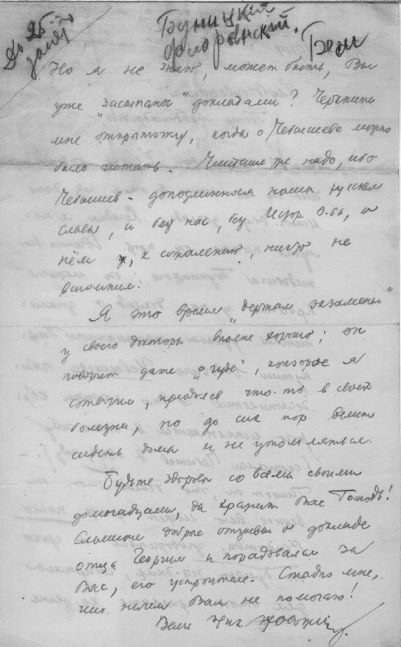 До 25
Буницкий
Но я не знаю, может быть, Вы
уже "засыпаны" докладами? Черкните
мне открытку, когда о Чебышеве можно
было читать. Читать же надо, ибо
Чебышев - доподлинная наша, русская
слава, и без нас, без Истор. О-ва, о
нём, к сожалению, никто не
вспомнит.
Я это время "держал экзамены"
у своего доктора вполне хорошо; он
говорит даже о "чуде", которое я
сотворил, проделав что-то в своей
болезни, но до сих пор велит
сидеть дома и не утомляться.
Будьте здоровы со всеми своими
домочадцами, да хранит Вас Господь!
Слышал добрые отзывы о докладе
отца Георгия и порадовался за
Вас, его устроителе. Стыдно мне,
что ничем Вам не помогаю!
Ваш